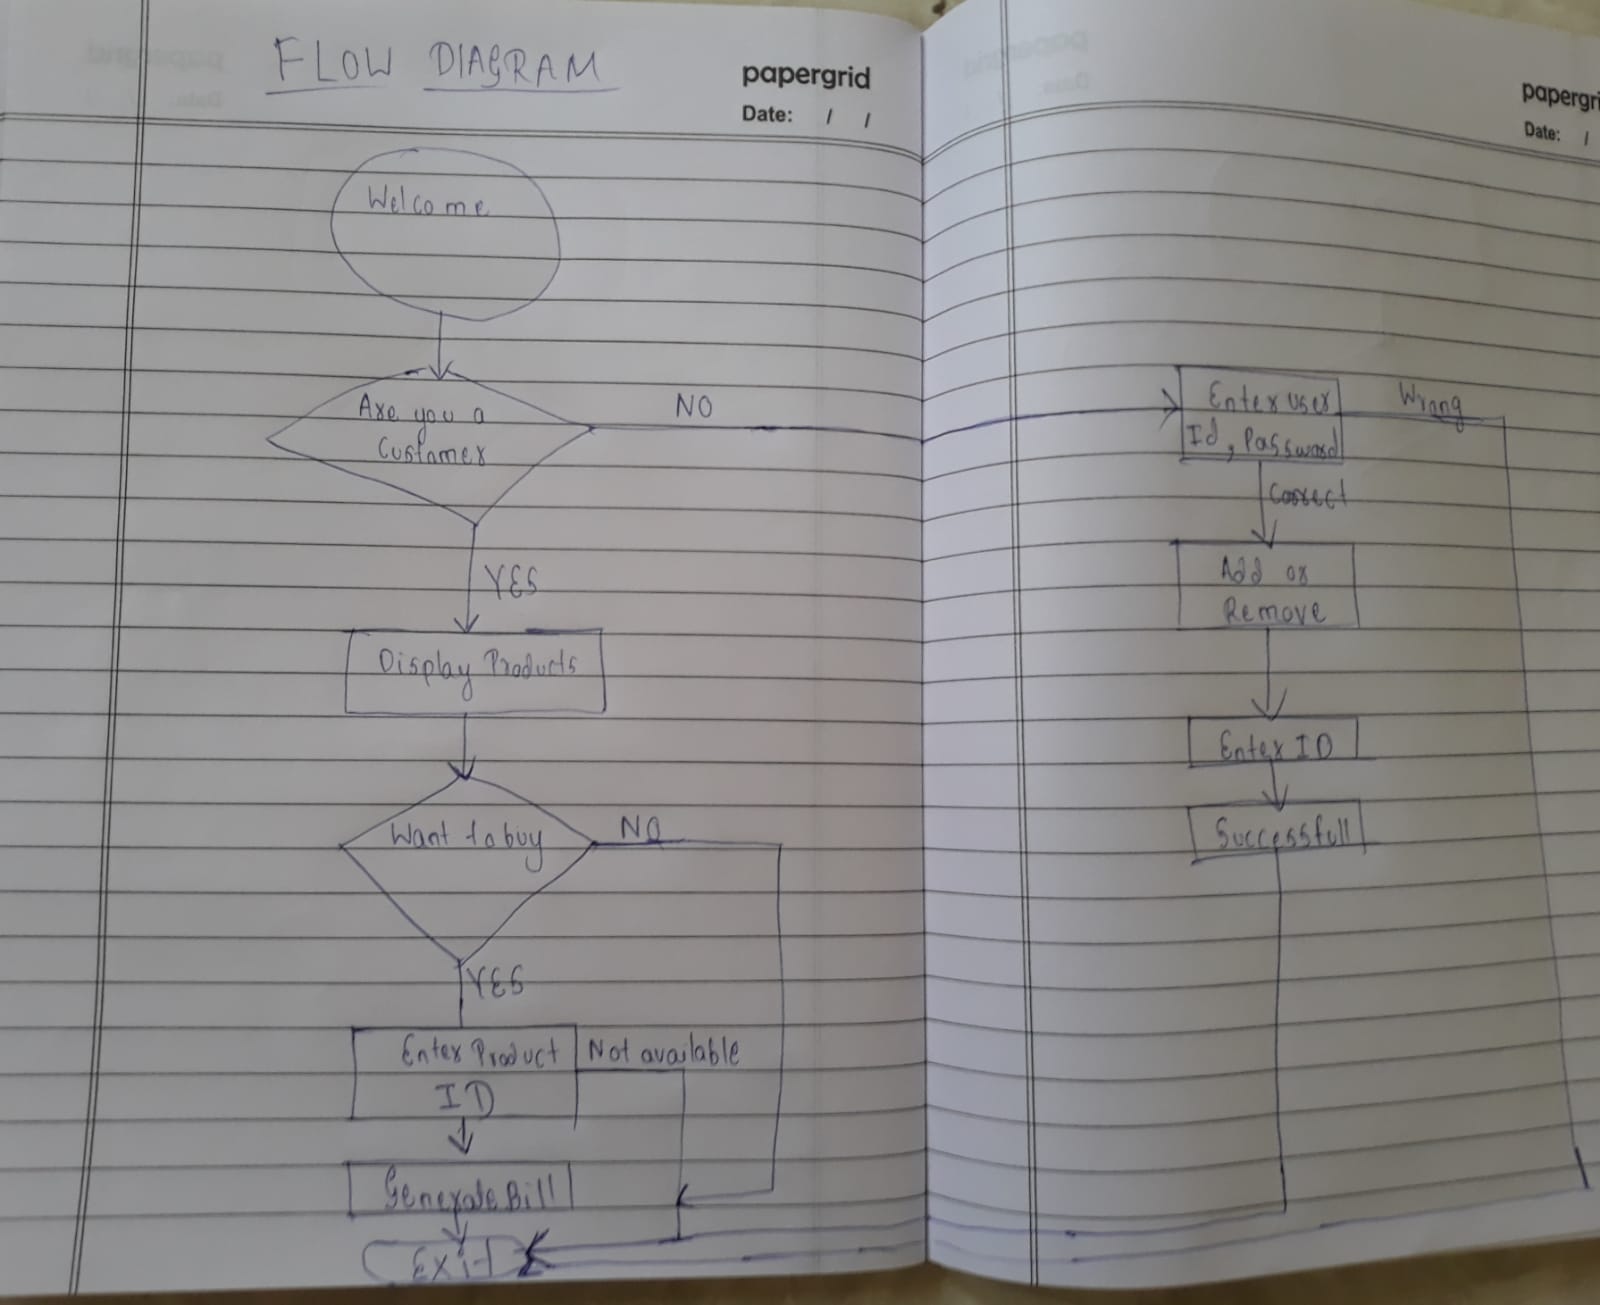 FLOW DIAGRAM
papergrid
Date: / /
Welcome
Are you a
Customer
NO
YES
Display Products
Want to buy
NO
YES
Enter Product
ID
Not available
Generate Bill
Exit
papergri
Date: /
Enter user
Id, Password
Wrong
Correct
Add or
Remove
Enter ID
Successfull